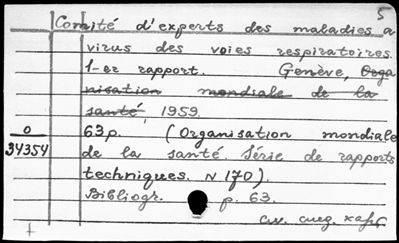 5
Comité d'experts des maladies a
virus des voies respiratoires.
1-er rapport. Genève, Orga
nisation mondiale de la
santé, 1959.
63p. (Organisation mondiale
de la santé. Série de rapports
techniques. N 170).
Bibliogr. p. 63.
0
34354
см. след. карт